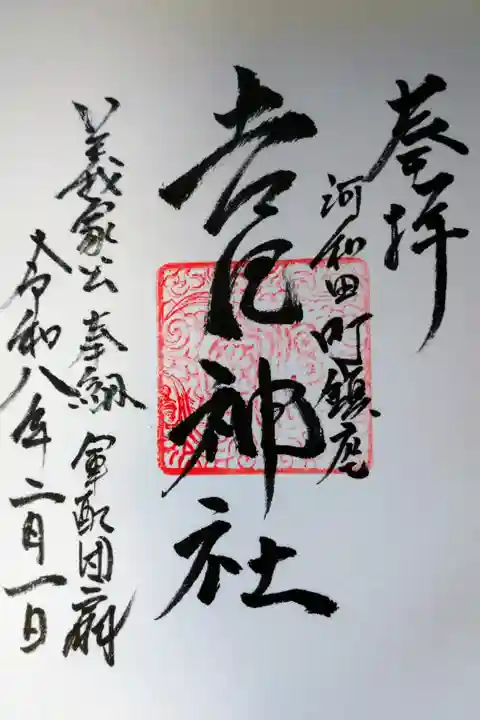 奉拝
河和田町鎮座
吉田神社
義家公奉納 軍配団扇
令和八年二月一日